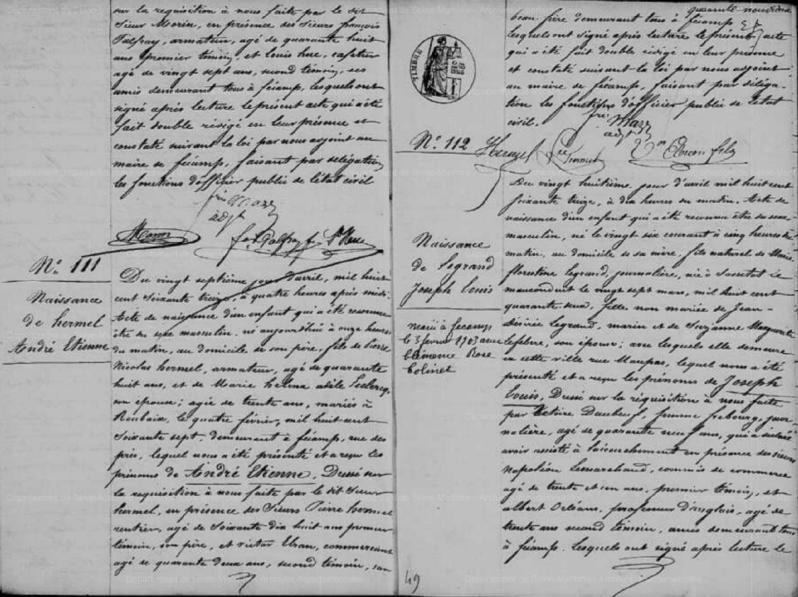 sur la requisition à nous faite par le dit
Sieur Morin, en présence des Sieurs françois
Palfray, armateur, agé de quarante huit
ans premier témoin, et Louis hue,
agé de vingt sept ans, second témoin, ses
amis demeurant tous à fécamp, lesquels ont
signé après lecture le présent acte qui a été
fait double rédigé en leur présence et
constaté suivant la loi par nous adjoint au
maire de fécamp, faisant par délégation
les fonctions d'officier public de l'état civil
adjt
Morin
Nº 111
Naissance
de hermel
André Etienne
Du vingt septième jour d'avril, mil huit
cent soixante treize, à quatre heures après midi.
Acte de naissance d'un enfant qui a été reconnu
être du sexe masculin. né aujourd'hui à onze heures
du matin, au domicile de son père, fils de Pierre
Nicolas hermel, armateur, agé de quarante
huit ans, et de Marie adèle Leclercq,
son épouse; agée de trente ans, mariés à
Roubaix, le quatre février, mil huit cent
soixante sept. demeurant à fécamp, rue des
prés, lequel nous a été présenté et a reçu les
prénoms de André Etienne. Dressé sur
la requisition à nous faite par le dit Sieur
hermel, en présence des Sieurs Pierre hermel
rentier, agé de soixante dix huit ans premier
témoin, son père, et victor commercant
agé de quarante deux ans, second témoin, son
quarante neuvième
beau frère demeurant tous à fécamp
lesquels ont signé après lecture le présent acte
qui a été fait double rédigé en leur présence
et constaté suivant la loi par nous adjoint
au maire de fécamp, faisant par déléga-
tion les fonctions d'officier public de l'état
civil.
adjt
TIMBRE
Nº 112
Hermel
Naissance
de Legrand
Joseph Louis
marié à fecamp
le 3 fevrier 1903 avec
Clémence Rose
Du vingt huitième, jour d'avril mil huit cent
soixante treize, à dix heures du matin. Acte de
naissance d'un enfant qui a été reconnu être du sexe
masculin, né le vingt six courant à cinq heures du
matin, au domicile de sa mère. fils naturel de Marie
florentine legrand, journalière, née à
le vingt sept mars, mil huit cent
quarante fille non mariée de Jean-
Désiré legrand, marin et de Suzanne Marguerite
Lefebvre, son épouse; avec lesquels elle demeure
en cette ville rue Maupas, lequel nous a été
présenté et a reçu les prénoms de Joseph
Louis, Dressé sur la requisition à nous faite
par femme jour-
nalière, agée de quarante neuf ans, qui a déclaré
avoir assisté à l'accouchement en présence des sieurs
Napoléon Lemarchand, commis de commerce
agé de trente et un ans. premier témoin, et
albert Orléans, professeur d'anglais. agé de
trente ans second témoin, amis demeurant tous
à fécamp. lesquels ont signé après lecture le
49